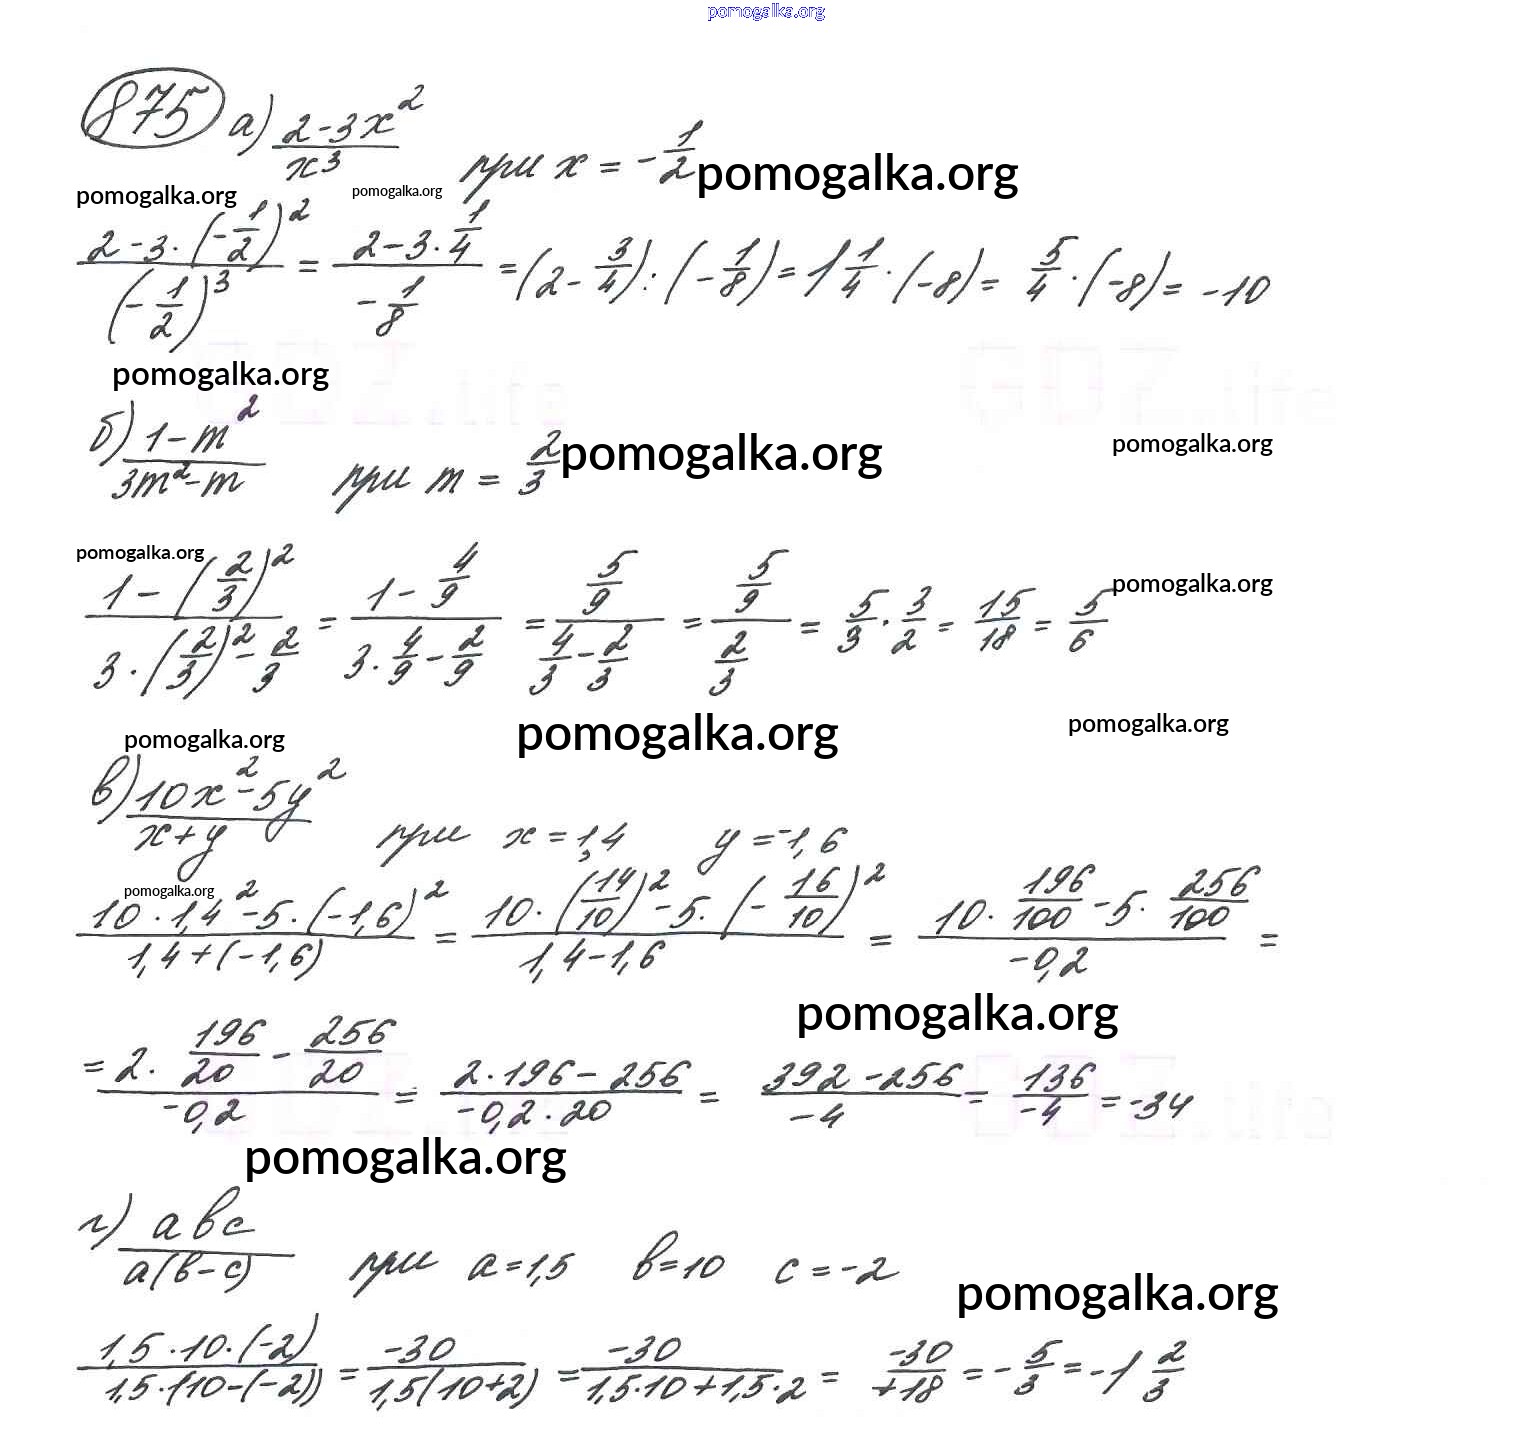 pomogalka.org
875 а) (2-3x²)/x³ при x = -1/2 pomogalka.org
pomogalka.org pomogalka.org
(2-3·(-1/2)²)/(-1/2)³ = (2-3·1/4)/(-1/8) = (2-3/4):(-1/8) = 1 1/4·(-8) = 5/4·(-8) = -10
GDZ.life GDZ.life
pomogalka.org
б) (1-m²)/(3m²-m) при m = 2/3 pomogalka.org pomogalka.org
pomogalka.org pomogalka.org
(1-(2/3)²)/(3·(2/3)²-2/3) = (1-4/9)/(3·4/9-2/9) = (5/9)/(4/3-2/3) = (5/9)/(2/3) = 5/3·3/2 = 15/18 = 5/6
pomogalka.org pomogalka.org pomogalka.org
в) (10x²-5y²)/(x+y) при x=1,4 y=-1,6
pomogalka.org
(10·1,4²-5·(-1,6)²)/(1,4+(-1,6)) = (10·(14/10)²-5·(-16/10)²)/(1,4-1,6) = (10·196/100-5·256/100)/(-0,2) =
pomogalka.org
= (2·196/20-256/20)/(-0,2) = (2·196-256)/(-0,2·20) = (392-256)/(-4) = 136/(-4) = -34
GDZ.life GDZ.life
pomogalka.org
г) abc/(a(b-c)) при a=1,5 b=10 c=-2
pomogalka.org
(1,5·10·(-2))/(1,5·(10-(-2))) = -30/(1,5(10+2)) = -30/(1,5·10+1,5·2) = -30/(+18) = -5/3 = -1 2/3